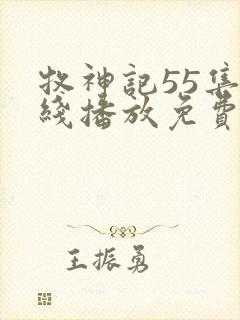 牧神記55集
綫播放免費
王振勇